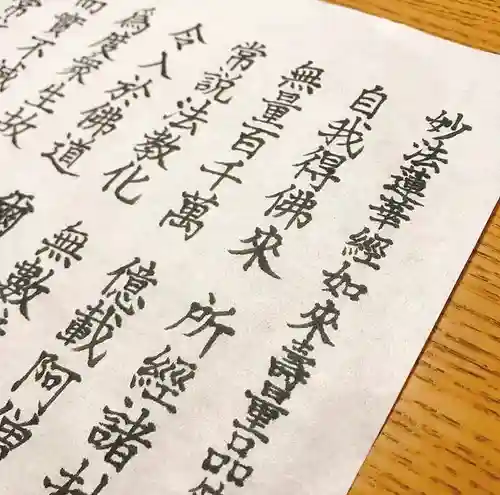 妙法蓮華經如來壽量品
自我得佛來 所經諸
無量百千萬 億載阿僧
常説法教化 無數
令入於佛道 爾
爲度衆生故
而實不滅
常